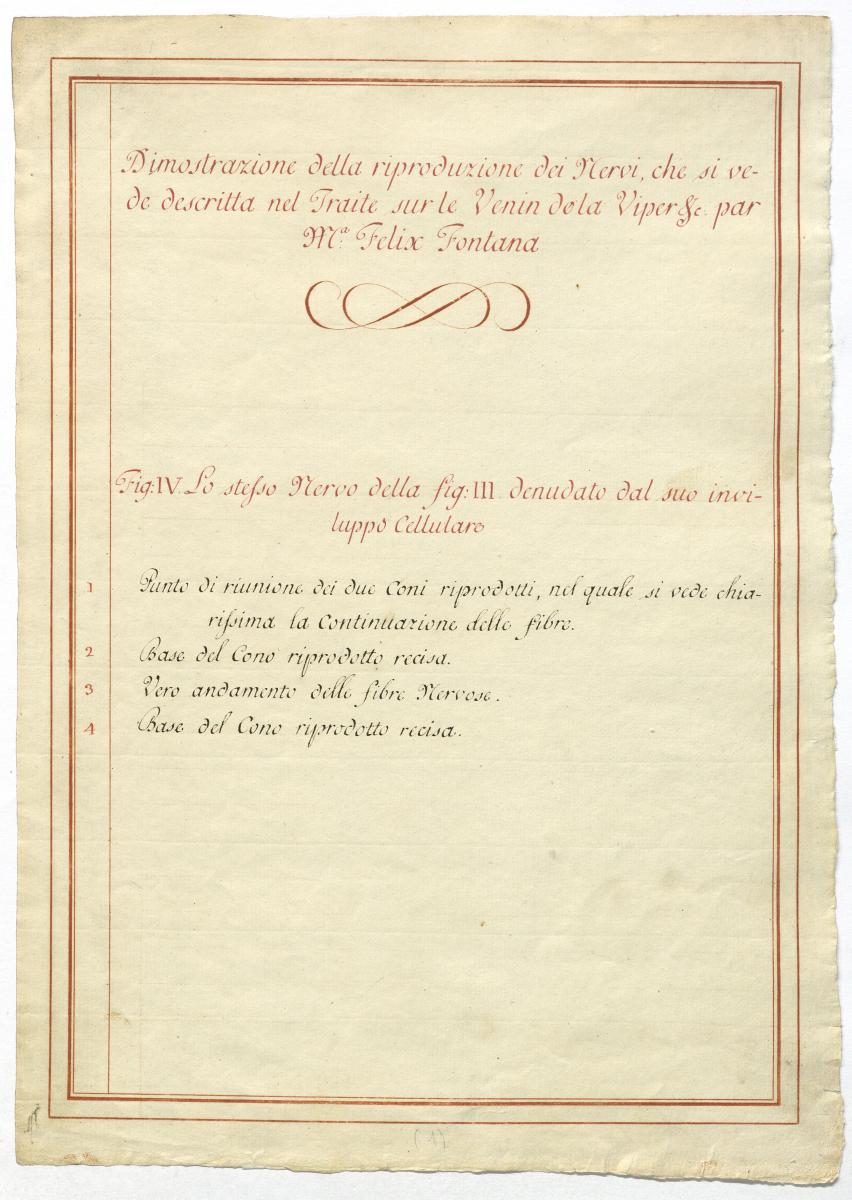 Dimostrazione della riproduzione dei Nervi, che si ve-
de descritta nel Traite sur le Venin dela Viper &c. par
M.a Felix Fontana
Fig: IV. Lo steſso Nervo della fig: III. denudato dal suo invi-
luppo Cellulare
1 Punto di riunione dei due Coni riprodotti, nel quale si vede chia-
riſsima la Continuazione delle fibre.
2 Base del Cono riprodotto recisa.
3 Vero andamento delle fibre Nervose.
4 Base del Cono riprodotto recisa.